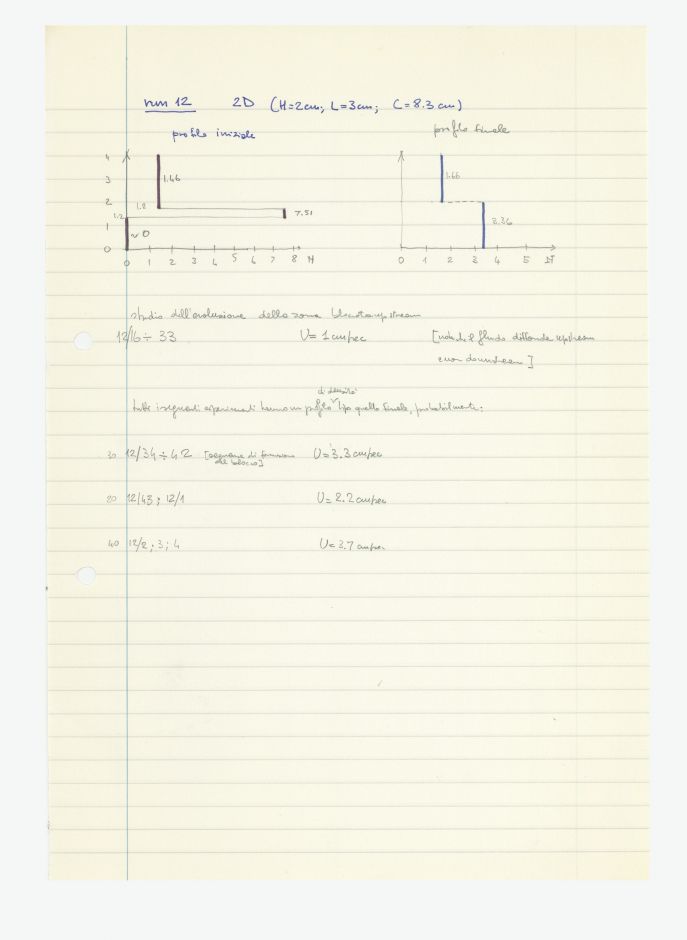 run 12 2D (H=2cm; L=3cm; C=8.3cm)
profilo iniziale profilo finale
4
3 1.66 1.66
2 1.2
1.2 7.51
1 3.36
~ 0
0
0 1 2 3 4 5 6 7 8 N 0 1 2 3 4 5 N
studio dell'evoluzione della zona bloccata upstream
12/16 ÷ 33 U = 1 cm/sec [nota che il fluido diffonde upstream
e non downstream]
di densità
tutti i seguenti esperimenti hanno un profilo tipo quello finale, probabilmente:
30 12/34 ÷ 42 [di formazione U = 3.3 cm/sec
del blocco]
20 12/43 ; 12/1 U = 2.2 cm/sec
40 12/2 ; 3 ; 4 U = 3.7 cm/sec